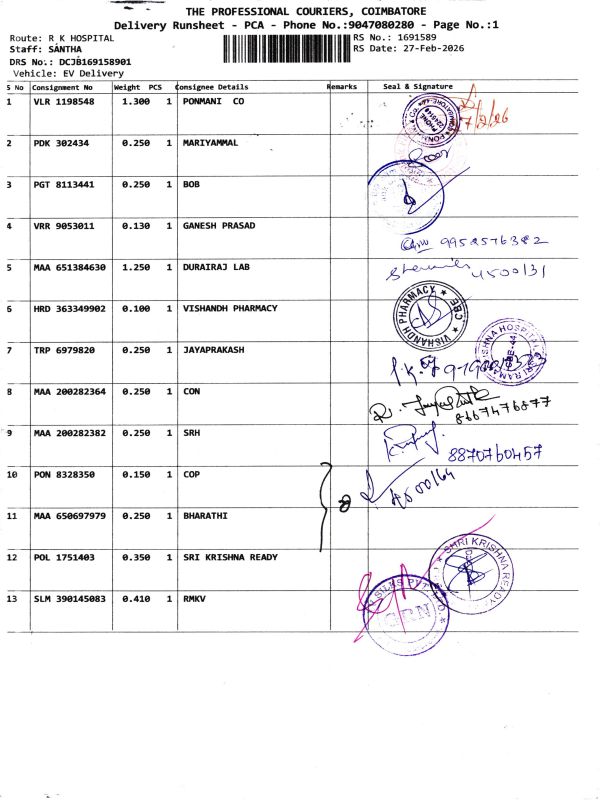 THE PROFESSIONAL COURIERS, COIMBATORE
Delivery Runsheet - PCA - Phone No.:9047080280 - Page No.:1
Route: R K HOSPITAL
RS No.: 1691589
Staff: SANTHA
RS Date: 27-Feb-2026
DRS No.: DCJB169158901
Vehicle: EV Delivery
S No Consignment No Weight PCS Consignee Details Remarks Seal & Signature
1 VLR 1198548 1.300 1 PONMANI CO
2 PDK 302434 0.250 1 MARIYAMMAL
3 PGT 8113441 0.250 1 BOB
4 VRR 9053011 0.130 1 GANESH PRASAD
5 MAA 651384630 1.250 1 DURAIRAJ LAB 4500131
6 HRD 363349902 0.100 1 VISHANDH PHARMACY VISHANDH PHARMACY CBE
7 TRP 6979820 0.250 1 JAYAPRAKASH
8 MAA 200282364 0.250 1 CON 8667476877
9 MAA 200282382 0.250 1 SRH 8870760457
10 PON 8328350 0.150 1 COP
11 MAA 650697979 0.250 1 BHARATHI
12 POL 1751403 0.350 1 SRI KRISHNA READY SHRI KRISHNA READY
13 SLM 390145083 0.410 1 RMKV SILKS PVT GRN